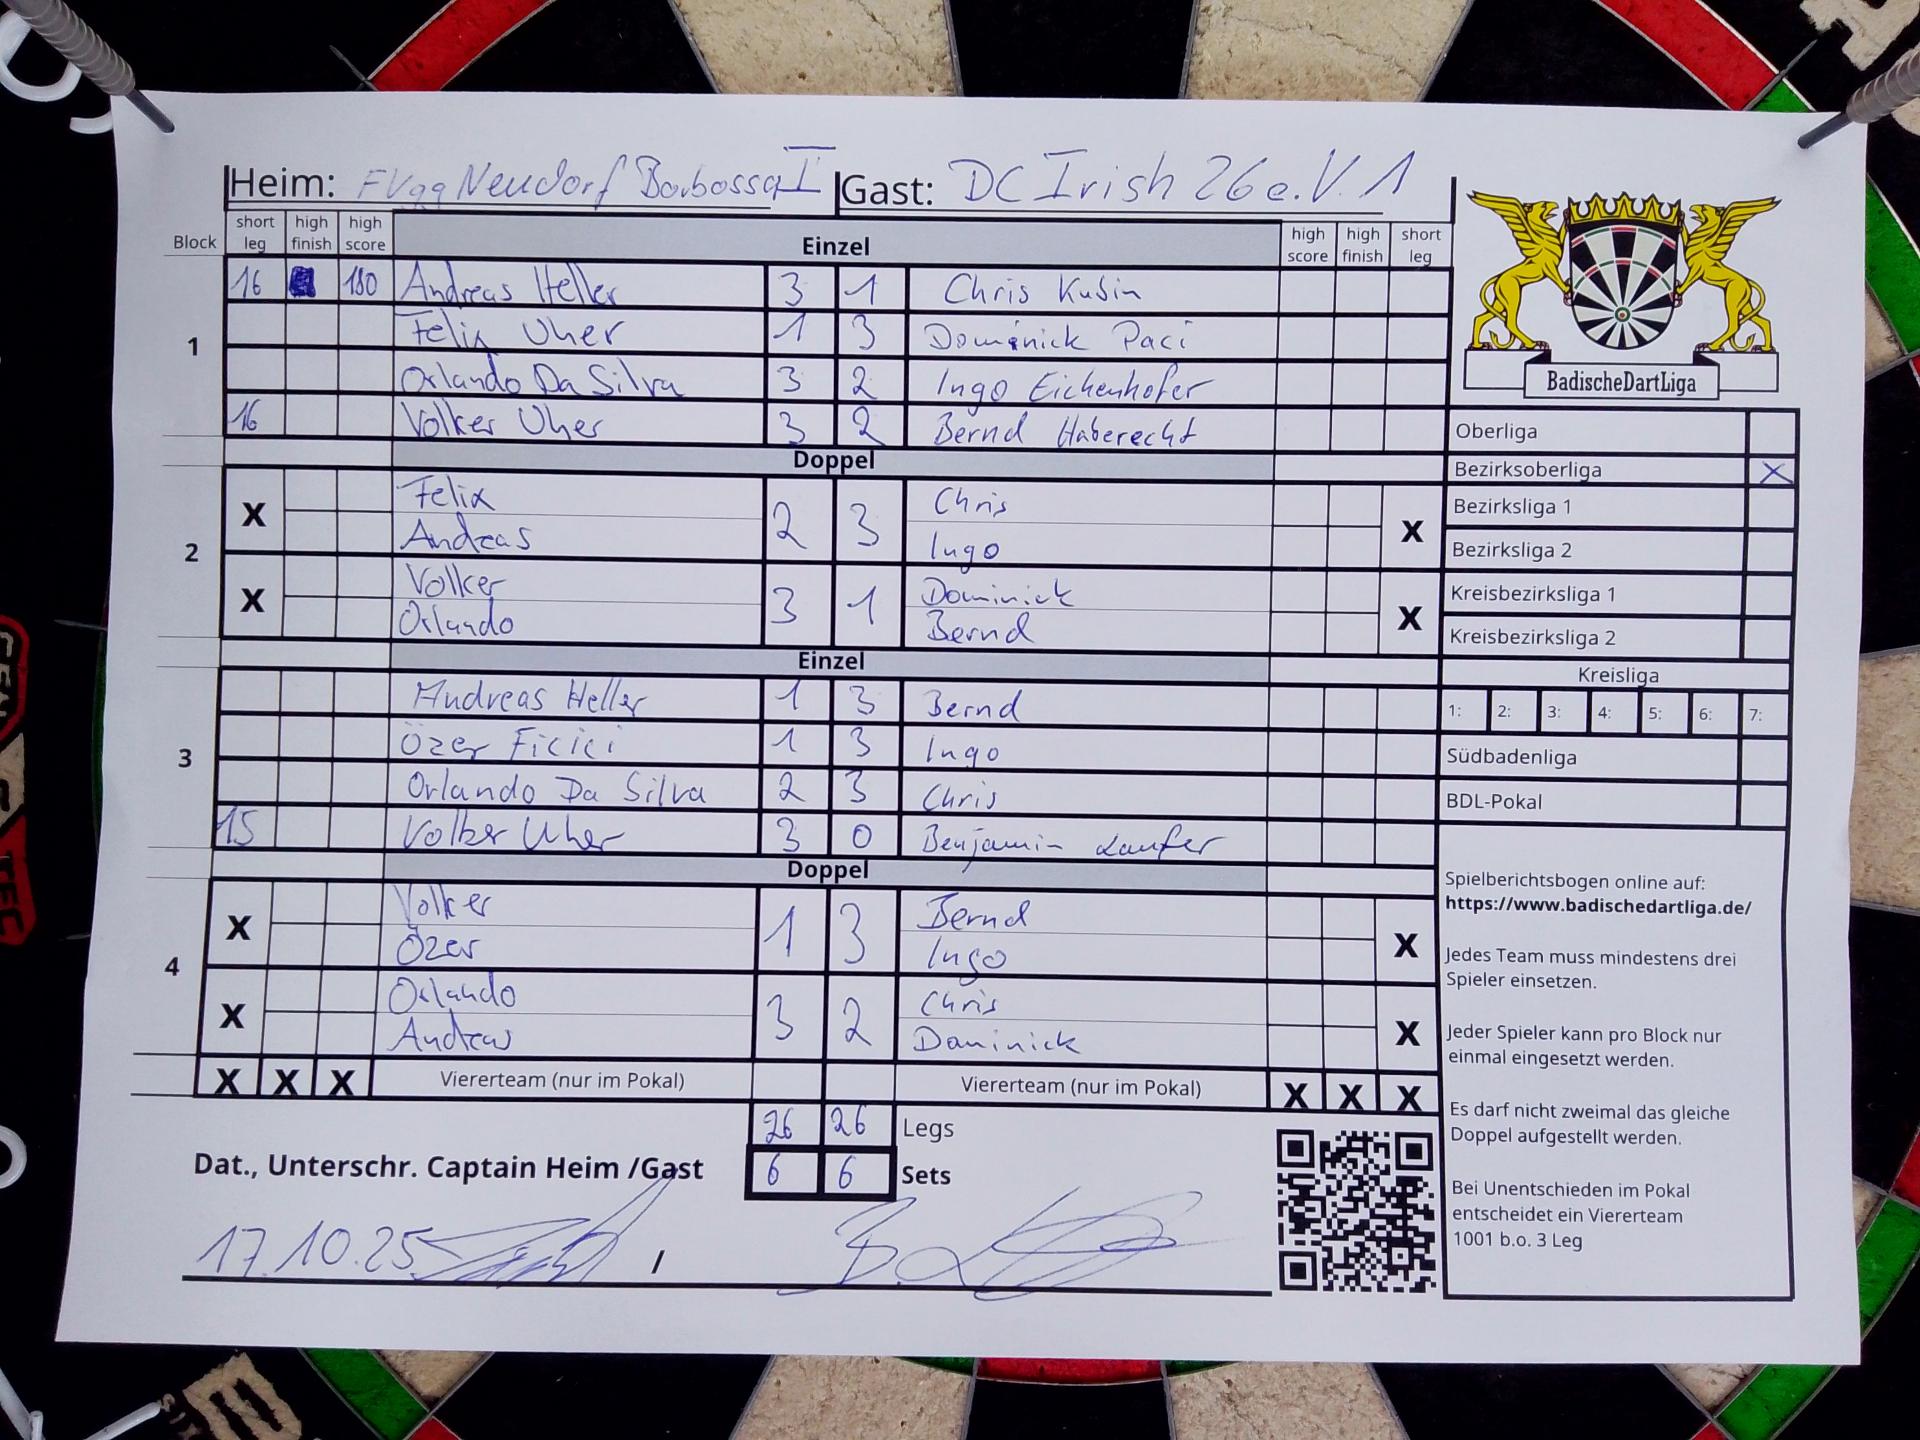 Heim: FVgg Neudorf Barbossa I Gast: DC Irish 26 e.V. 1
Block short leg high finish high score Einzel high score high finish short leg
1
16 180 Andreas Heller 3 1 Chris Kubin
Felix Uher 1 3 Dominick Paci
Orlando Da Silva 3 2 Ingo Eichenhofer
16 Volker Uher 3 2 Bernd Haberecht
Doppel
2
X Felix 2 3 Chris X
Andreas Ingo
X Volker 3 1 Dominick X
Orlando Bernd
Einzel
3
Andreas Heller 1 3 Bernd
Özer Ficici 1 3 Ingo
Orlando Da Silva 2 3 Chris
15 Volker Uher 3 0 Benjamin Laufer
Doppel
4
X Volker 1 3 Bernd X
Özer Ingo
X Orlando 3 2 Chris X
Andreas Dominick
X X X Viererteam (nur im Pokal) Viererteam (nur im Pokal) X X X
26 26 Legs
Dat., Unterschr. Captain Heim /Gast 6 6 Sets
17.10.25 /
BadischeDartLiga
Oberliga
Bezirksoberliga X
Bezirksliga 1
Bezirksliga 2
Kreisbezirksliga 1
Kreisbezirksliga 2
Kreisliga
1: 2: 3: 4: 5: 6: 7:
Südbadenliga
BDL-Pokal
Spielberichtsbogen online auf:
https://www.badischedartliga.de/
Jedes Team muss mindestens drei
Spieler einsetzen.
Jeder Spieler kann pro Block nur
einmal eingesetzt werden.
Es darf nicht zweimal das gleiche
Doppel aufgestellt werden.
Bei Unentschieden im Pokal
entscheidet ein Viererteam
1001 b.o. 3 Leg